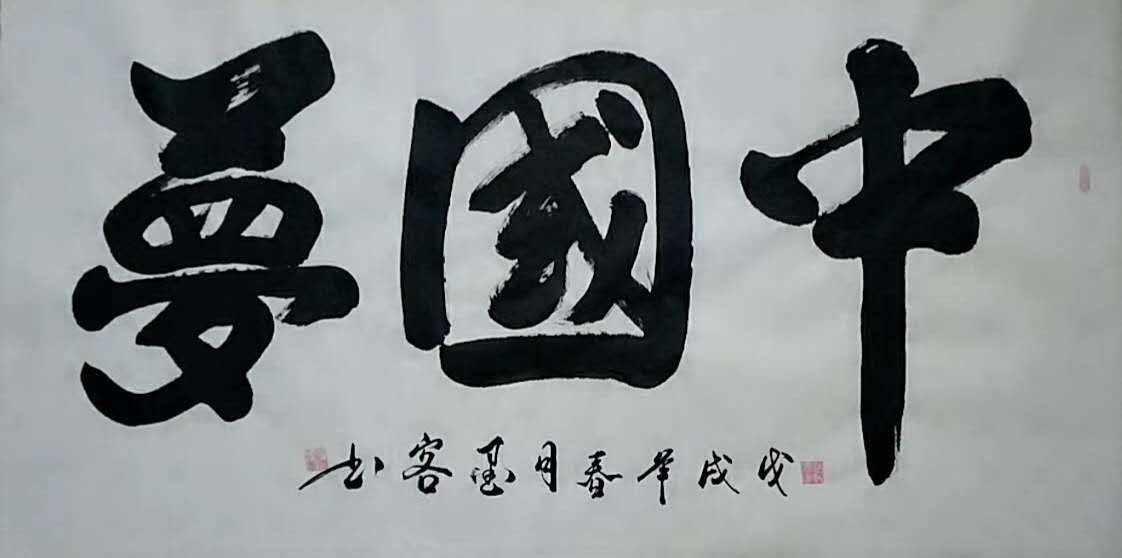 中國夢
戊戌年春月墨客书